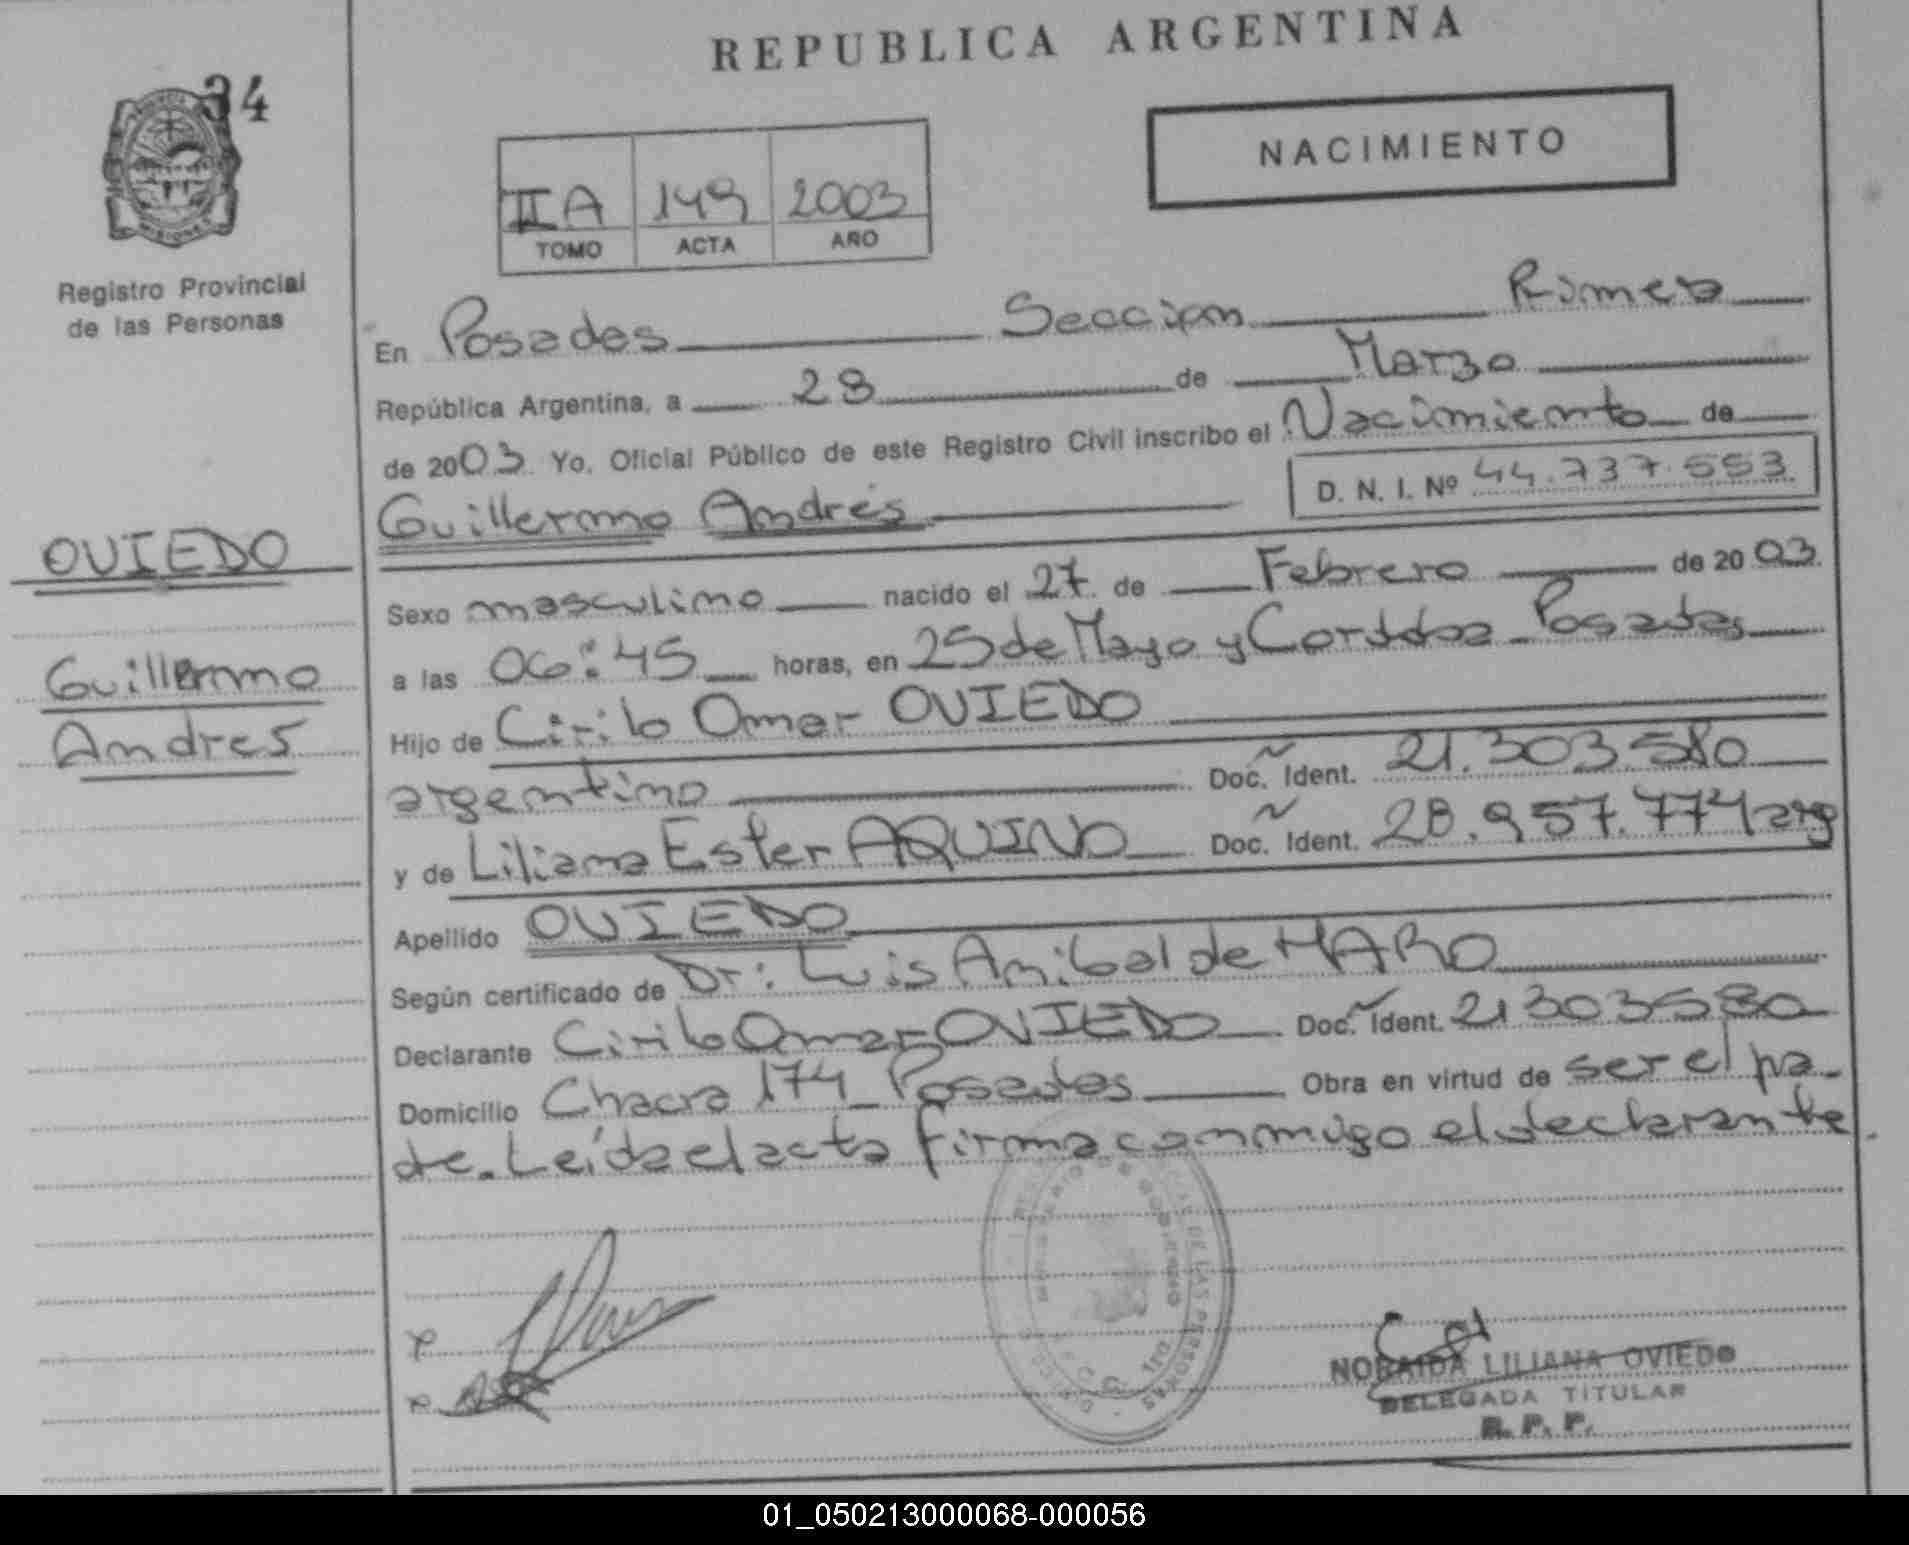 REPUBLICA ARGENTINA
34
NACIMIENTO
II A 149 2003
TOMO ACTA AÑO
Registro Provincial
de las Personas
En Posadas Seccion Primera
República Argentina, a 28 de Marzo
de 2003. Yo, Oficial Público de este Registro Civil inscribo el Nacimiento de
Guillermo Andrés D. N. I. Nº 44.737.553
OVIEDO
Guillermo
Andres
Sexo masculino nacido el 27 de Febrero de 2003.
a las 06:45 horas, en 25 de Mayo y Cordoba Posadas
Hijo de Cirilo Omar OVIEDO
argentino Doc. Ident. 21.303.580
y de Liliana Ester AQUINO Doc. Ident. 28.957.774 arg
Apellido OVIEDO
Según certificado de Dr: Luis Anibal de HARO
Declarante Cirilo Omar OVIEDO Doc. Ident. 21303580
Domicilio Chacra 174 Posadas Obra en virtud de ser el pa-
dre. Leída el acta firma conmigo el declarante.
MINISTERIO DE GOBIERNO
DE LAS PERSONAS
1ra
NORAIDA LILIANA OVIEDO
DELEGADA TITULAR
R. P. P.
01_050213000068-000056